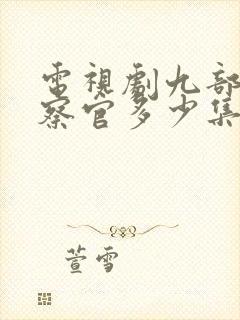 電視劇九部
察官多少集
萱雪